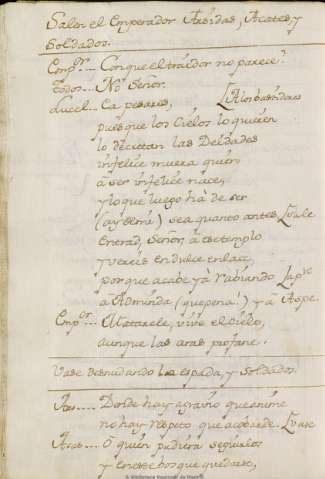 Salen el Emperador Arsidas, Acates, y
Soldados.
Emp.or... Con que el traidor no parece?
todos... No Señor.
Lucel... Ea pesares,
pues que los Cielos lo quieren
lo decretan las Deidades
infelice muera quien
a ser infelice nace,
y lo que luego ha de ser
(ay de mi) sea quanto antes. Vase
Entrad, Señor, a este templo
y vereis en dulce enlace,
porque acabe yà rabiando
a Arminda (que pena!) y a
Emp.or... Matarele, vive el Cielo,
aunque las aras profane.
Vase desnudando la espada, y Soldados.
Ars... Donde hay agravio que anime
no hay respeto que acobarde. Vase
Acat... O quien pudiera seguirlos
y entre el bosque quedarse,
Biblioteca Nacional de España